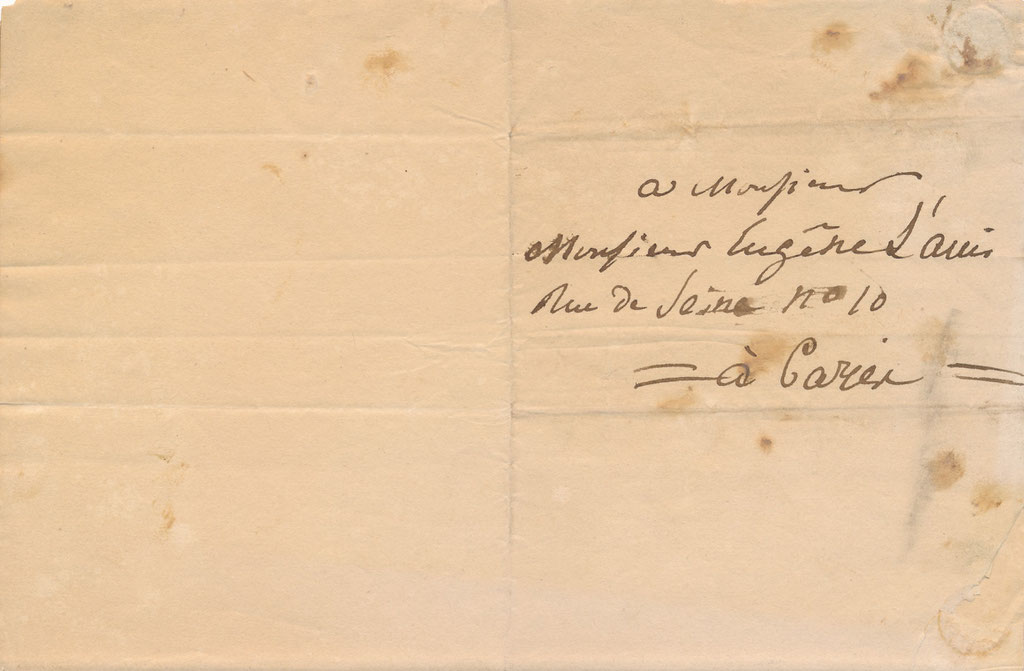 a Monsieur
Monsieur Eugêne L'ami
Rue de Seine n° 10
à Paris